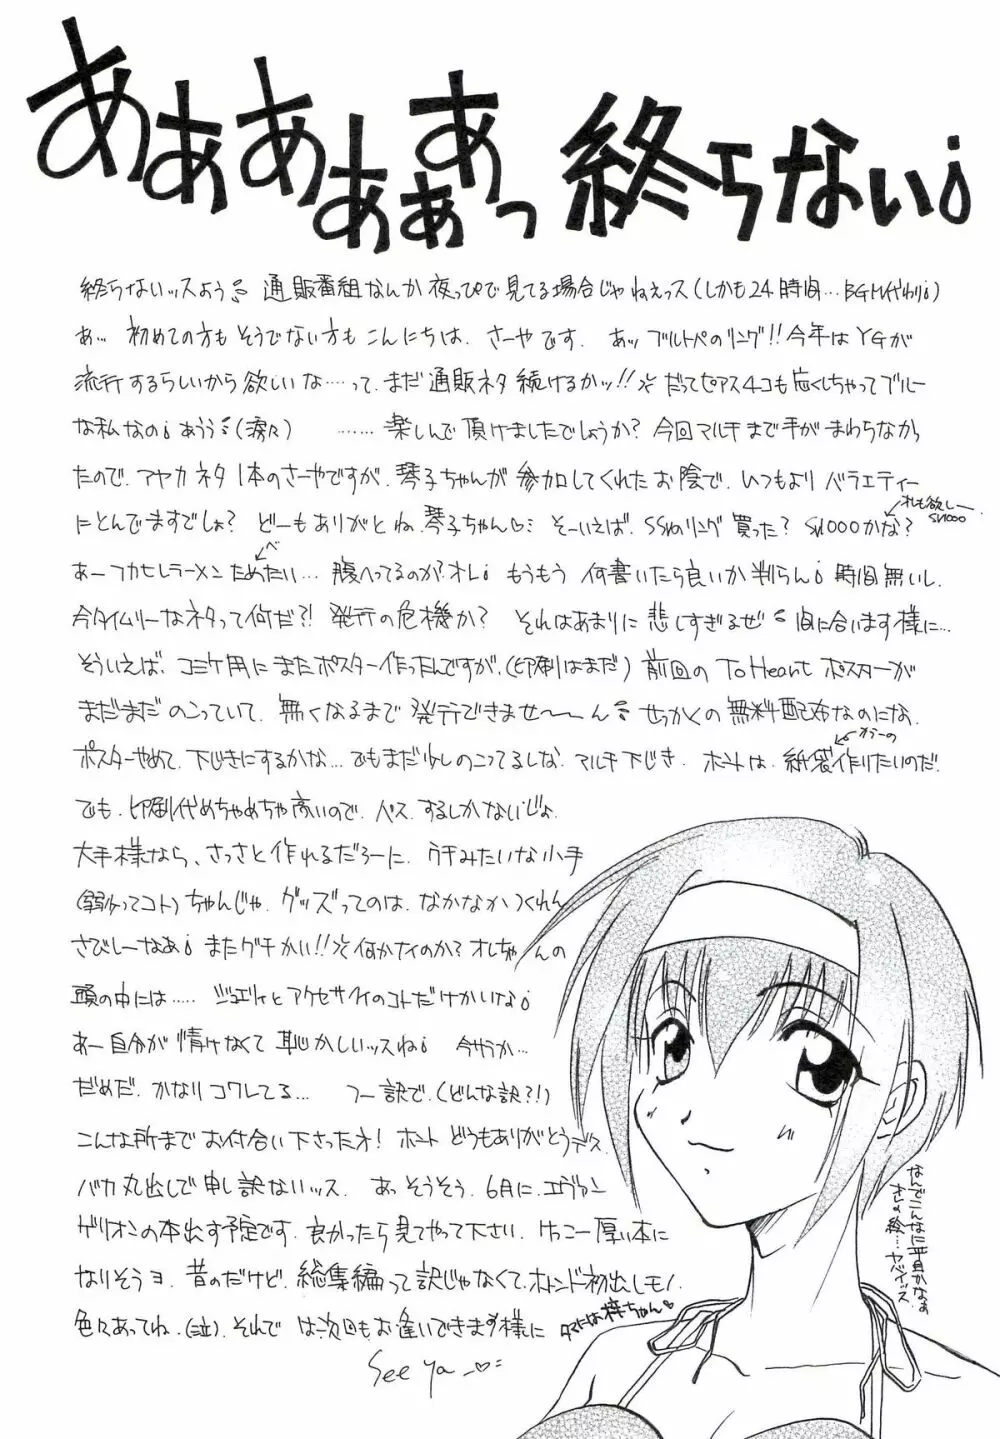 ああああああっ終らない!
終らないッスよう 通販番組なんか夜っぴで見てる場合じゃねえっス(しかも24時間…BGM代わり!)
あ… 初めての方もそうでない方もこんにちは、さーやです。あッブルトペのリング!!今年はYGが
流行するらしいから欲しいな……って、まだ通販ネタ続けるかッ!! だってピアス4コも亡くしちゃってブルー
な私なの!あうう(涙々) ……楽しんで頂けましたでしょうか?今回マルチまで手がまわらなかっ
たので、アヤカネタ1本のさーやですが、琴子ちゃんが参加してくれたお陰で、いつもよりバラエティー
にとんでますでしょ?どーもありがとね、琴子ちゃん♡ そーいえば、SSのリング買った?SV1000かな?
オレも欲しー SV1000
あーフカヒレラーメンためたい…腹へってるのか?オレ!もうもう何書いたら良いか判らん!時間無いし、
べ
今タイムリーなネタって何だ?!発行の危機か? それはあまりに悲しすぎるぜ 間に合います様に…
そういえば、コミケ用にまたポスター作ったんですが、(印刷はまだ)前回のTo Heartポスターが
まだまだのこっていて、無くなるまで発行できませ〜ん せっかくの無料配布なのにな、
ポスターやめて、下じきにするかな…でもまだ少しのこってるしな、マルチ下じき。ホントは、紙袋作りたいのだ。
カラーの
でも、印刷代めちゃめちゃ高いので、パス、するしかないじょ
大手様なら、さっさと作れるだろーに、ウチみたいな小手
(弱小ってコト)ちゃんじゃ、グッズってのは、なかなかつくれん
さびしーなあ!またグチかい!! 何かナイのか?オレちゃんの
頭の中には……ジュエリィとアクセサリィのコトだけかいな!
あー自分が情けなくて恥かしいッスね! 今サラか…
だめだ、かなりコワレてる… つー訳で、(どんな訳?!)
こんな所までお付合い下さった方!ホントどうもありがとうデス
バカ丸出しで申し訳ないッス。 あっそうそう、6月に、エヴァン
ゲリオンの本出す予定です。良かったら見てやって下さい、けっこー厚い本に
なりそうヨ、昔のだけど、総集編って訳じゃなくて、ホトンド初出しモノ、
色々あってね、(泣)、それでは、次回もお逢いできます様に
See ya
タマには梓ちゃん
なんでこんなに平目かなぁ
さやの絵…ヤバイッス